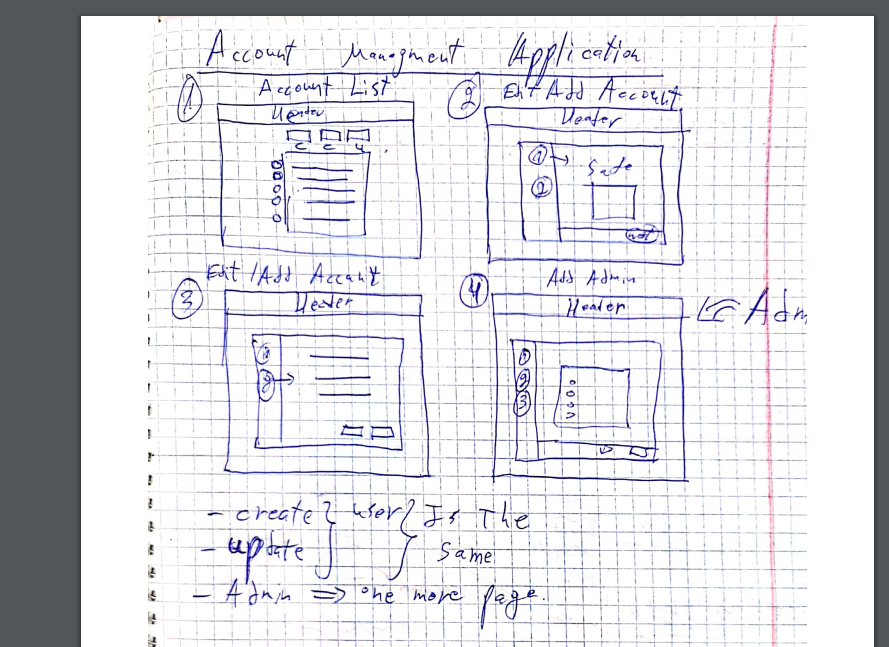 Account Managment Application
① Account List
Header
C C U
② Edit Add Account
Header
① →
②
③ Edit / Add Account
Header
①
② →
④ Add Admin
Header
①
②
③
⇐ Adm
- create } user { Is The
- update } Same
- Admin => one more page.